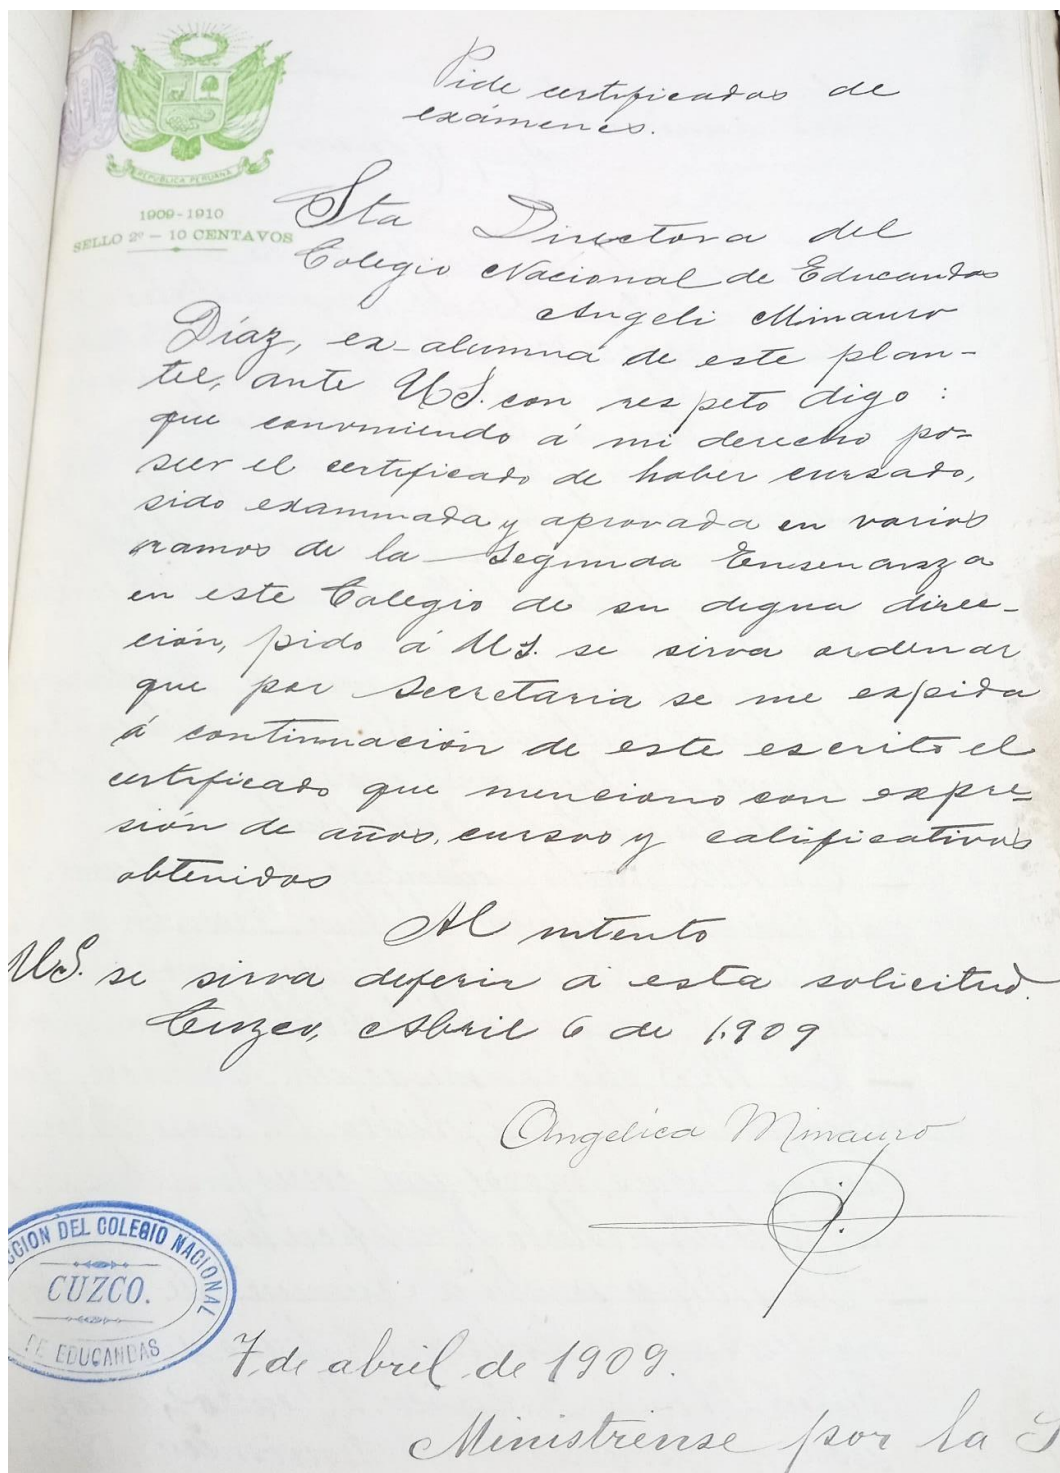 Pide certificados de
exámenes.
REPUBLICA PERUANA
1909-1910
SELLO 2º - 10 CENTAVOS
Sta Directora del
Colegio Nacional de Educandas
Angeli Minauro
Díaz, ex-alumna de este plan-
tel, ante US. con respeto digo:
que conviniendo á mi derecho po-
seer el certificado de haber cursado,
sido examinada y aprovada en varios
ramos de la Segunda Ensenanza
en este Colegio de su digna direc-
ción, pido á US. se sirva ordenar
que por Secretaria se me expida
á continuación de este escrito el
certificado que menciono con expre-
sión de años, cursos y calificativos
obtenidos
Al intento
US. se sirva deferir á esta solicitud.
Cuzco, Abril 6 de 1.909
Angelica Minauro
CCION DEL COLEGIO NACIONAL
CUZCO.
DE EDUCANDAS
7 de abril de 1909.
Ministrense por la S